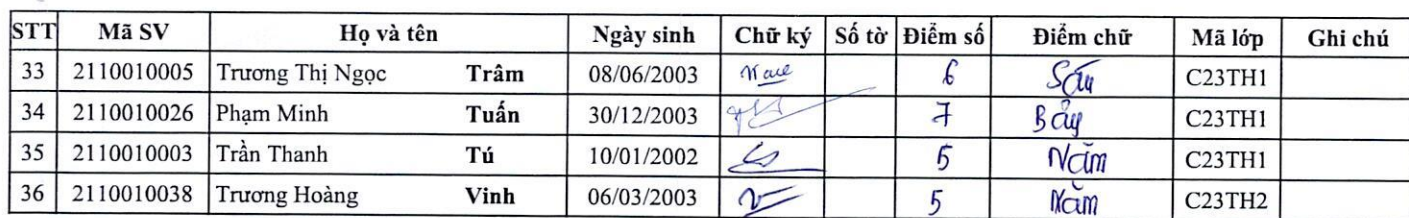 STT Mã SV Họ và tên Ngày sinh Chữ ký Số tờ Điểm số Điểm chữ Mã lớp Ghi chú
33 2110010005 Trương Thị Ngọc Trâm 08/06/2003 6 Sáu C23TH1
34 2110010026 Phạm Minh Tuấn 30/12/2003 7 Bảy C23TH1
35 2110010003 Trần Thanh Tú 10/01/2002 5 Năm C23TH1
36 2110010038 Trương Hoàng Vinh 06/03/2003 5 Năm C23TH2